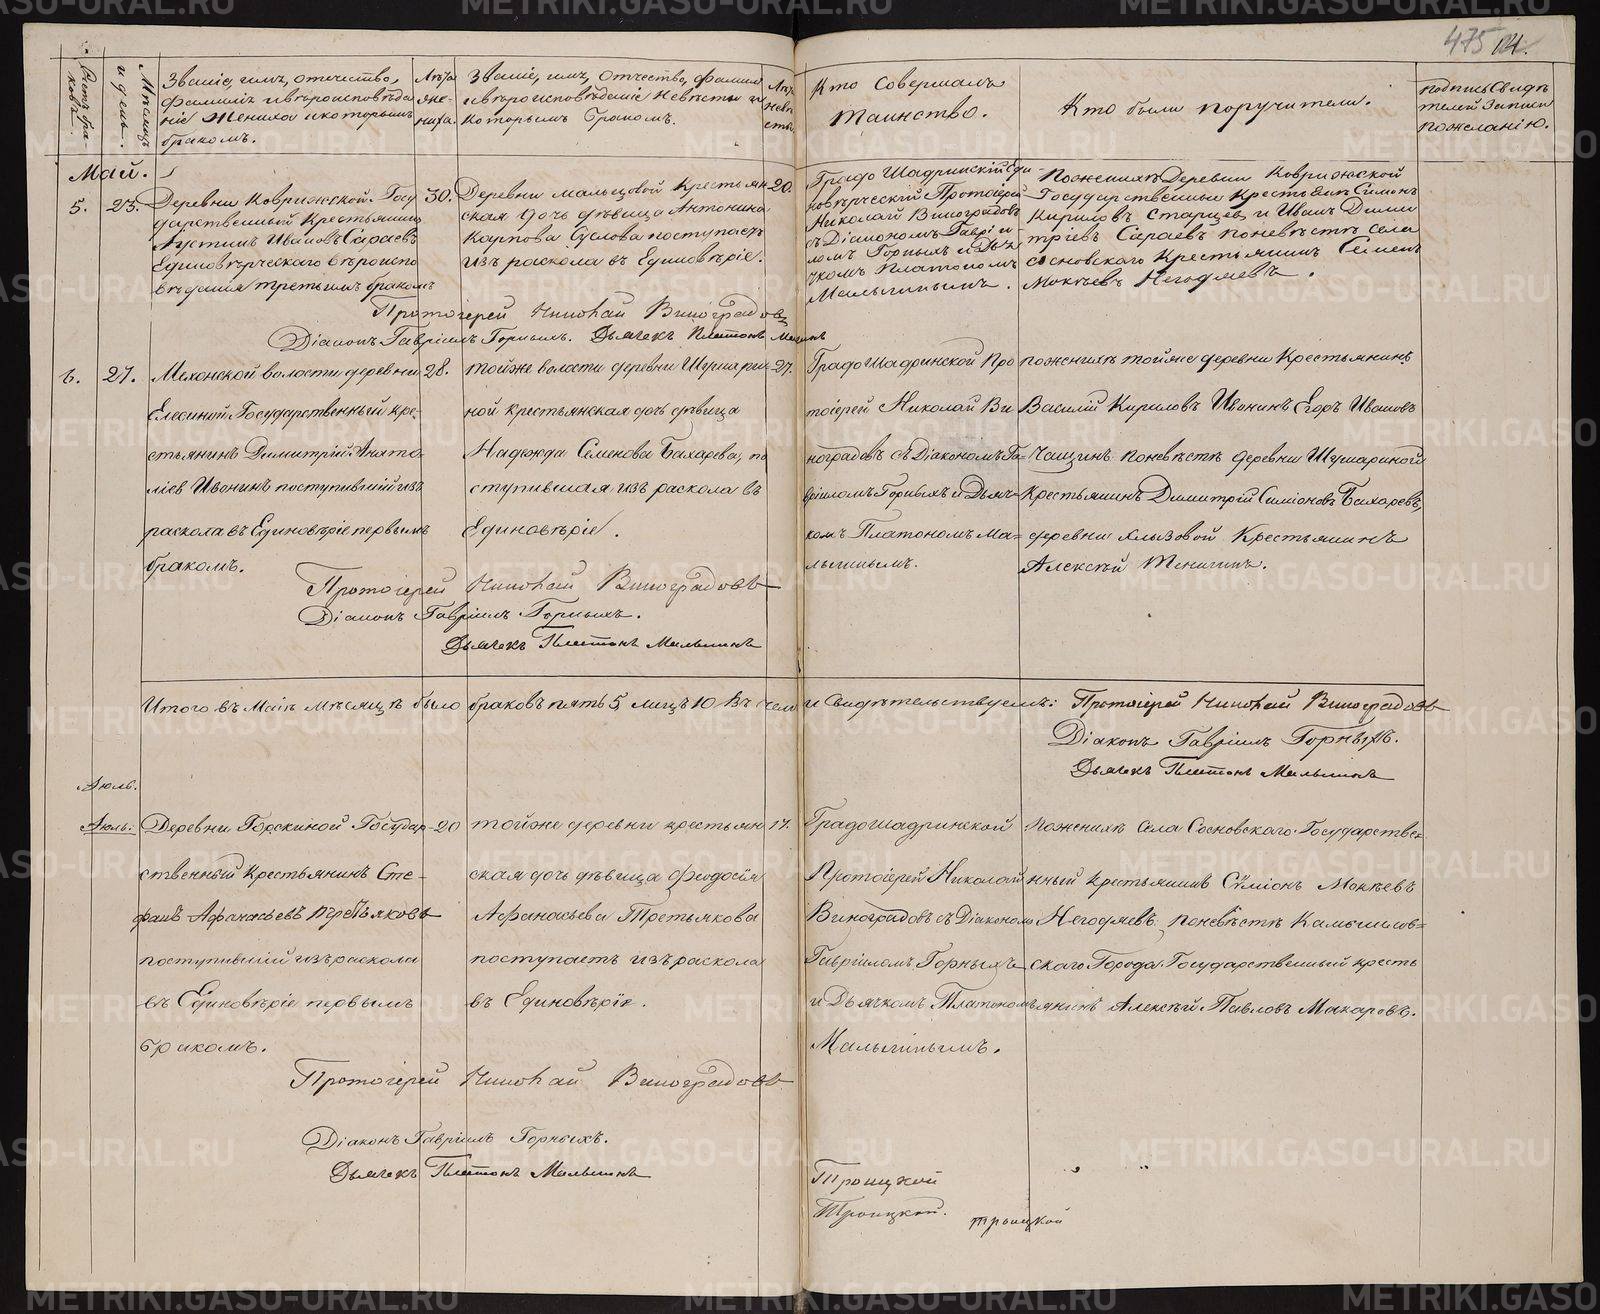 475 121.
Счетъ браковъ.
Мѣсяцъ и день.
Званіе, имя, отчество,
фамилія и вѣроисповѣда
ніе Жениха и которымъ
бракомъ.
Лѣта
же-
ниха.
Званіе, имя, отчество, фамилія
и вѣроисповѣданіе Невѣсты и
которымъ бракомъ.
Лѣта
невѣ
сты.
Кто совершалъ
Таинство.
Кто были поручители.
подпись свидѣ
телей записи
по желанію.
Май.
5. 23.
Деревни Коврижской Госу
дарственный Крестьянинъ
Августинъ Ивановъ Сараевъ
Единовѣрческаго вѣроиспо
вѣданія третьимъ бракомъ
30.
Деревни мальцовой Крестьян
ская дочь дѣвица Антонина
Карпова Суслова поступаетъ
изъ раскола въ Единовѣріе.
20.
Градо Шадринскій Еди
новѣрческій Протоіерей
Николай Виноградовъ
съ Діакономъ Гаврі и
ломъ Горныхъ и Дья
чкомъ Платономъ
Малыгинымъ.
По женихѣ Деревни Коврижской
Государственные Крестьяне Симонъ
Кириловъ Старцевъ и Иванъ Дими
тріевъ Сараевъ по невѣстѣ села
сосновскаго Крестьянинъ Семенъ
Мокѣевъ Негодяевъ.
Протоіерей Николай Виноградовъ
Діаконъ Гавріилъ Горныхъ. Дьячекъ Платонъ Малыгинъ
6. 27.
Мехонской волости деревни
Елесиной Государственный кре-
стьянинъ Димитрій Анато
ліевъ Ивонинъ поступившій изъ
раскола въ Единовѣріе первымъ
бракомъ.
28.
той же волости деревни Шушари
ной крестьянская дочь дѣвица
Надежда Семенова Бахарева, по
ступившая изъ раскола въ
Единовѣріе.
27.
Градо Шадринской Про
тоіерей Николай Ви
ноградовъ съ Діакономъ Га-
вріиломъ Горныхъ и Дьяч-
комъ Платономъ Ма-
лыгинымъ.
по женихѣ той же деревни Крестьянинъ
Василій Кириловъ Ивонинъ Егоръ Ивановъ
Чащинъ по невѣстѣ деревни Шушариной
Крестьянинъ Димитрій Симіоновъ Бахаревъ,
деревни Хлызовой Крестьянинъ
Алексѣй
Протоіерей Николай Виноградовъ
Діаконъ Гавріилъ Горныхъ.
Дьячекъ Платонъ Малыгинъ
Итого въ Маіѣ мѣсяцѣ было браковъ пять 5, лицъ 10 въ чемъ и свидѣтельствуемъ: Протоіерей Николай Виноградовъ
Діаконъ Гавріилъ Горныхъ.
Дьячекъ Платонъ Малыгинъ
Іюль.
Іюль:
Деревни Горскиной Государ-
ственный Крестьянинъ Сте-
фанъ Афанасьевъ Третьяковъ
поступившій изъ раскола
въ Единовѣріе первымъ
бракомъ.
20
той же деревни крестьян
ская дочь дѣвица Феодосія
Афанасьева Третьякова
поступаетъ изъ раскола
въ Единовѣріе.
17.
Градо Шадринской
Протоіерей Николай
Виноградовъ съ Діакономъ
Гавріиломъ Горныхъ
и Дьячкомъ Платономъ
Малыгинымъ.
По женихѣ села Сосновскаго Государстве-
нный крестьянинъ Симіонъ Мокѣевъ
Негодяевъ. по невѣстѣ Камышлов-
скаго Города Государственный кресть
янинъ Алексѣй Павловъ Макаровъ.
Протоіерей Николай Виноградовъ
Діаконъ Гавріилъ Горныхъ.
Дьячекъ Платонъ Малыгинъ
Троицкой
Троицкой.
троицкой